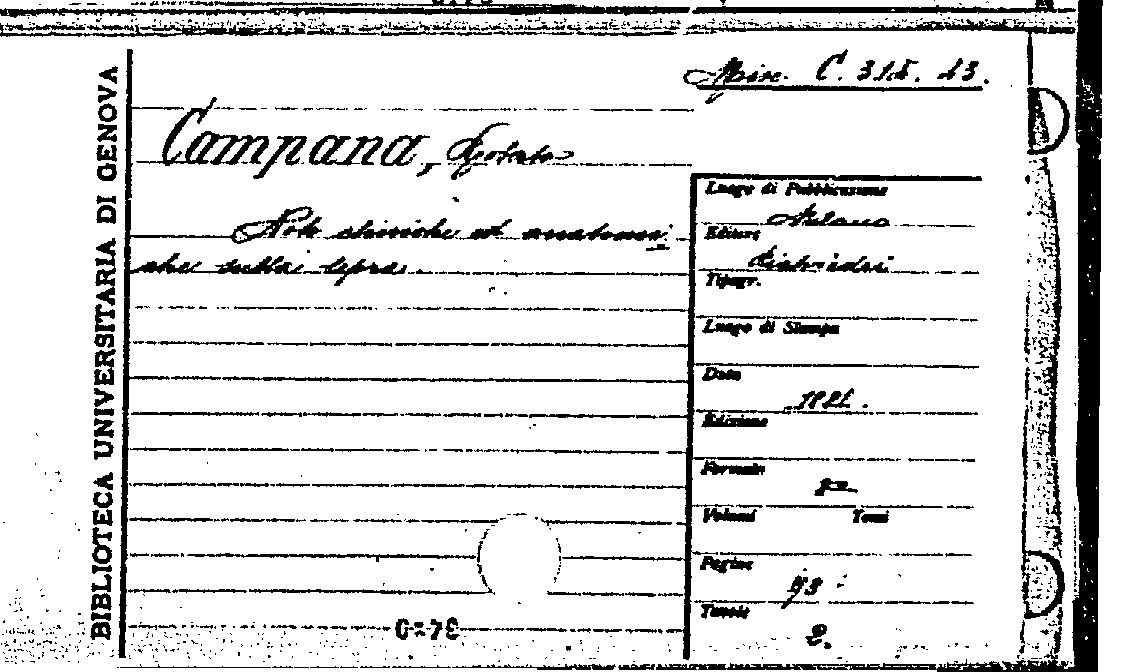 BIBLIOTECA UNIVERSITARIA DI GENOVA
Misc. C. 315. 23.
Campana, Roberto
Note cliniche ed anatomi-
che sulla lepra.
Luogo di Pubblicazione
Milano
Editore
Tipogr.
Luogo di Stampa
Data
Edizione
Formato
8º
Volumi Tomi
Pagine
93
Tavole
2.